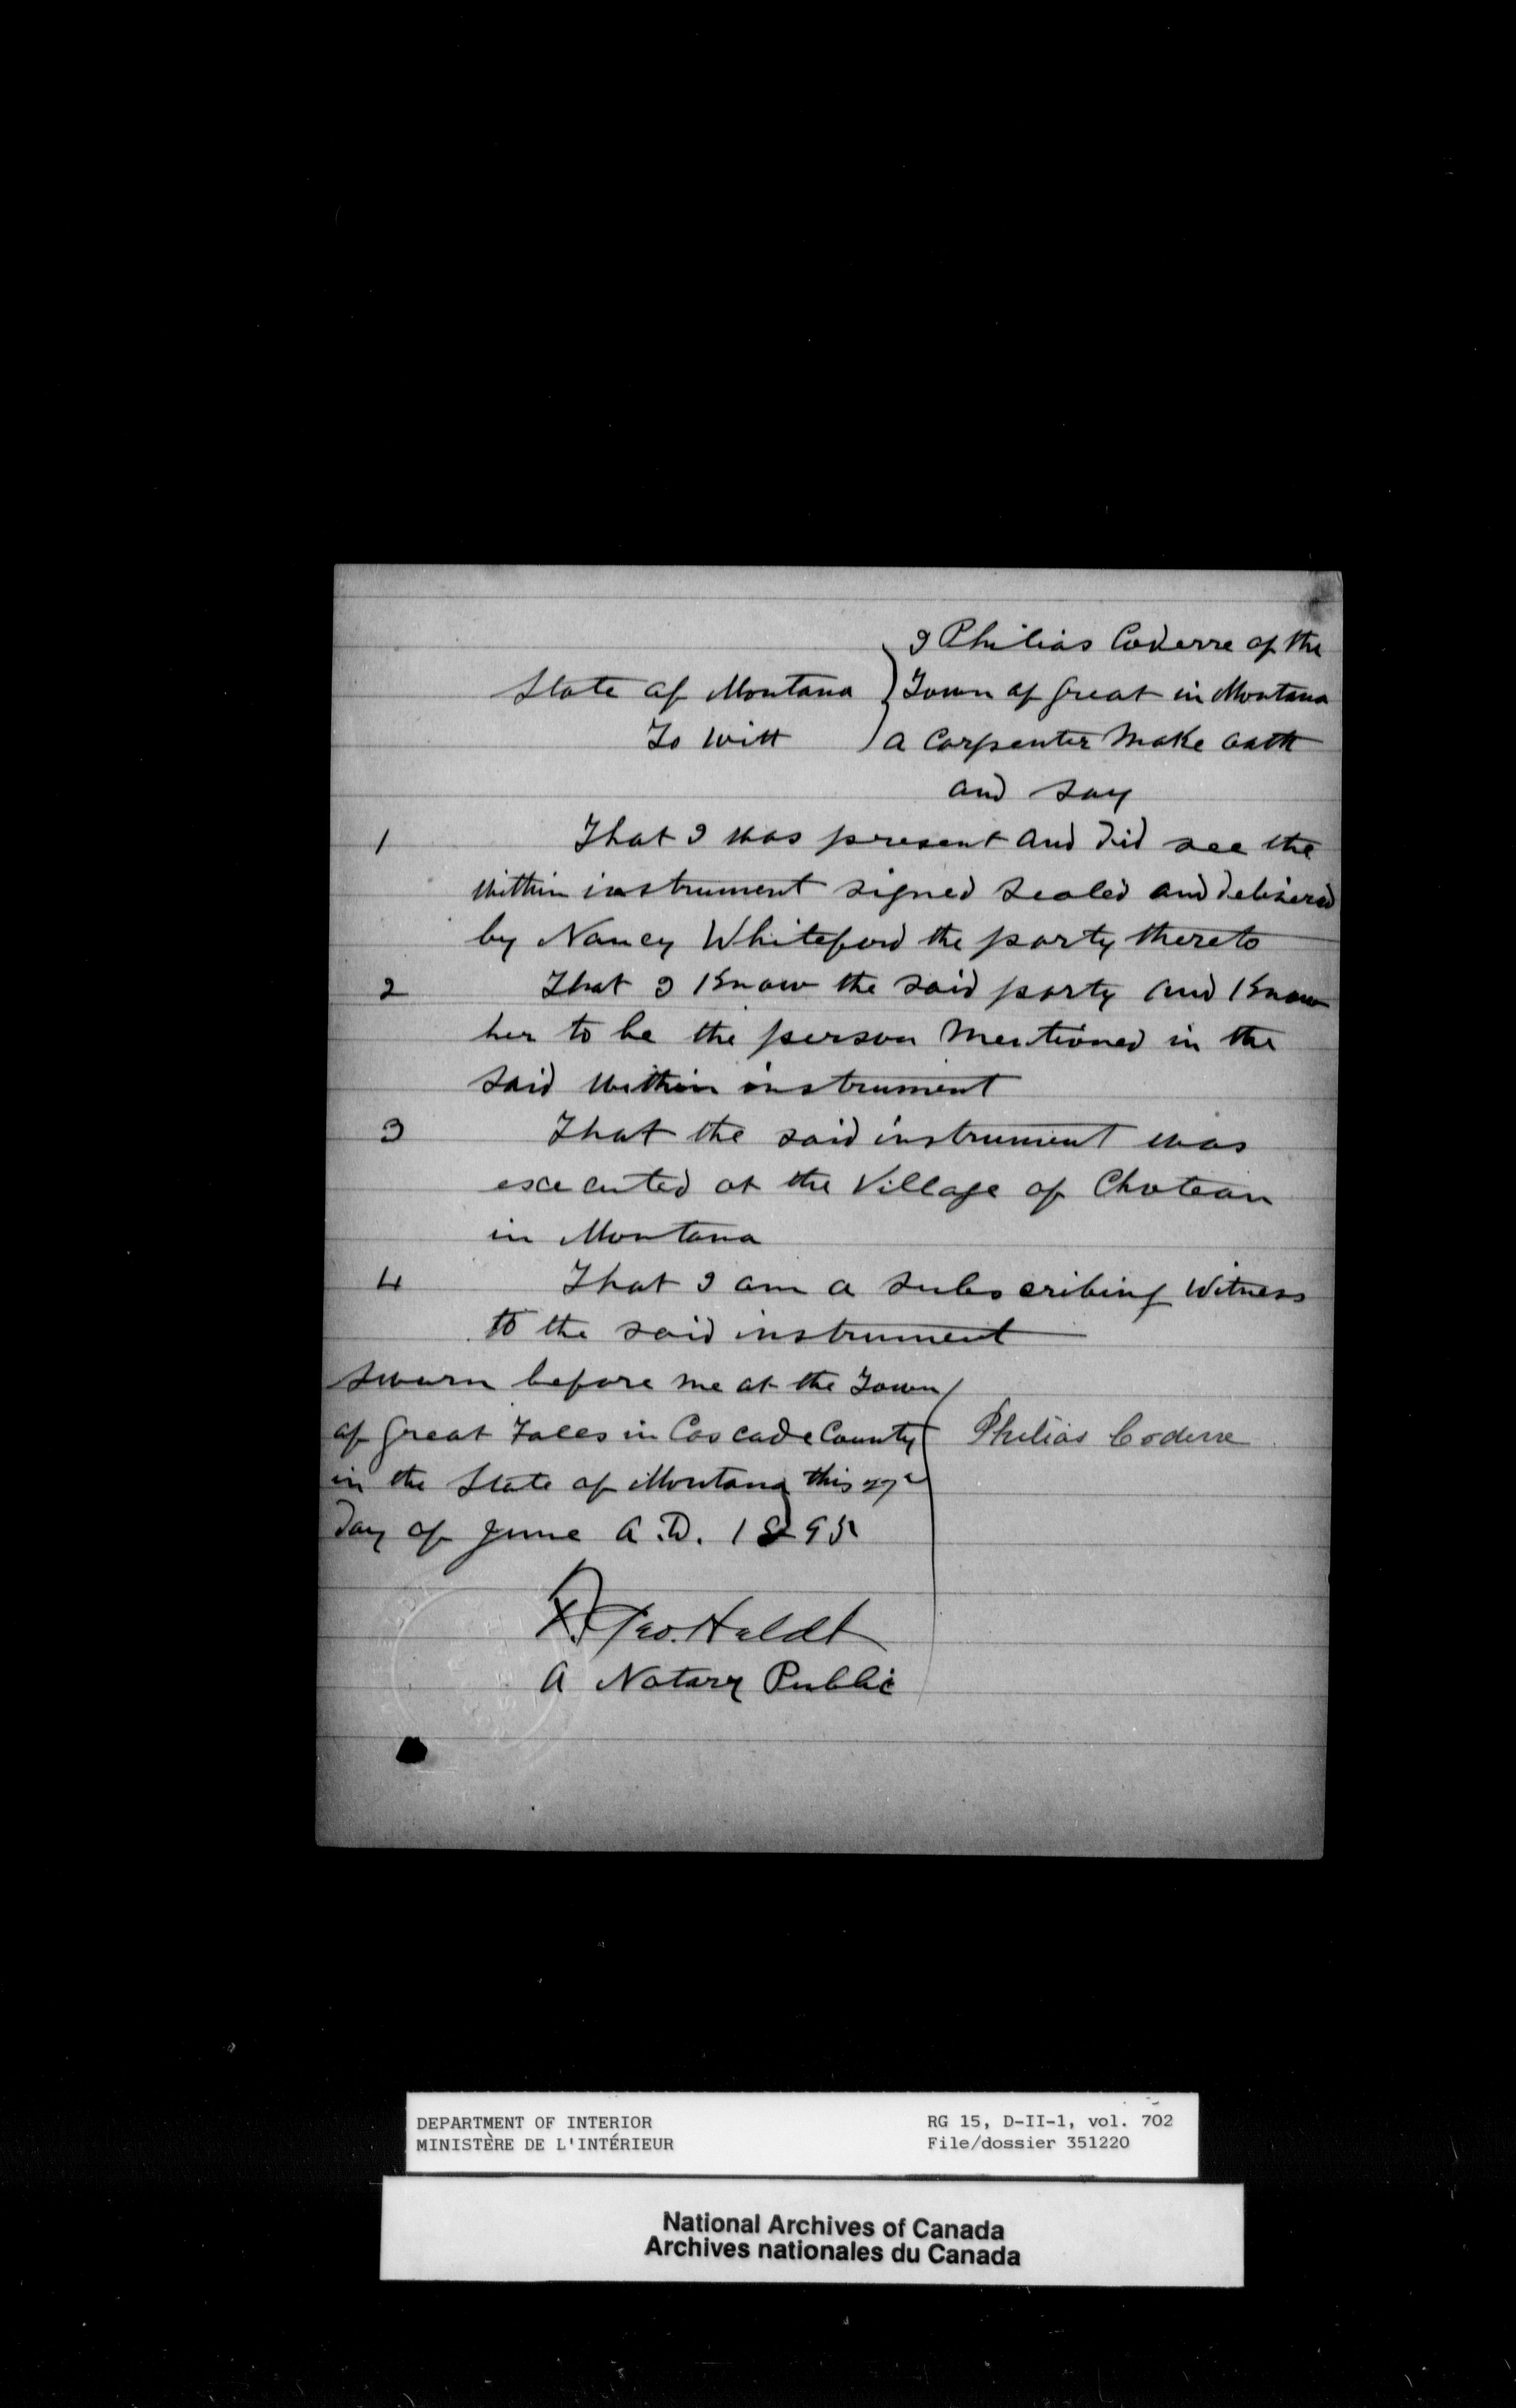 I Philias Coderre of the
State of Montana } Town of Great in Montana
To Witt } a Carpenter Make oath
and say
1 That I was present and did see the
within instrument signed sealed and delivered
by Nancy Whiteford the party thereto
2 That I Know the said party and Know
her to be the person Mentioned in the
said within instrument
3 That the said instrument was
executed at the Village of Choteau
in Montana
4 That I am a subscribing Witness
to the said instrument
Sworn before me at the Town
of Great Falls in Cascade County Philias Coderre
in the State of Montana this
day of June A.D. 1895
Geo. Heldt
A Notary Public
DEPARTMENT OF INTERIOR RG 15, D-II-1, vol. 702
MINISTÈRE DE L'INTÉRIEUR File/dossier 351220
National Archives of Canada
Archives nationales du Canada